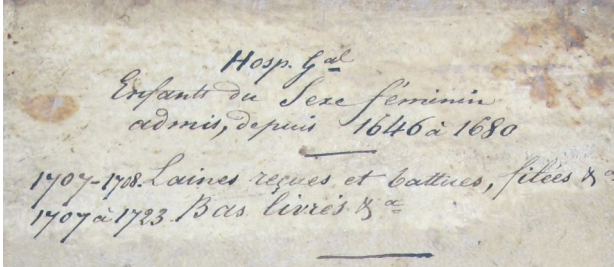 Hosp. Gal
Enfants du Sexe féminin
admis, depuis 1646 à 1680
1707-1708. Laines reçues et battues, filées &a
1707 à 1723. Bas livrés &a